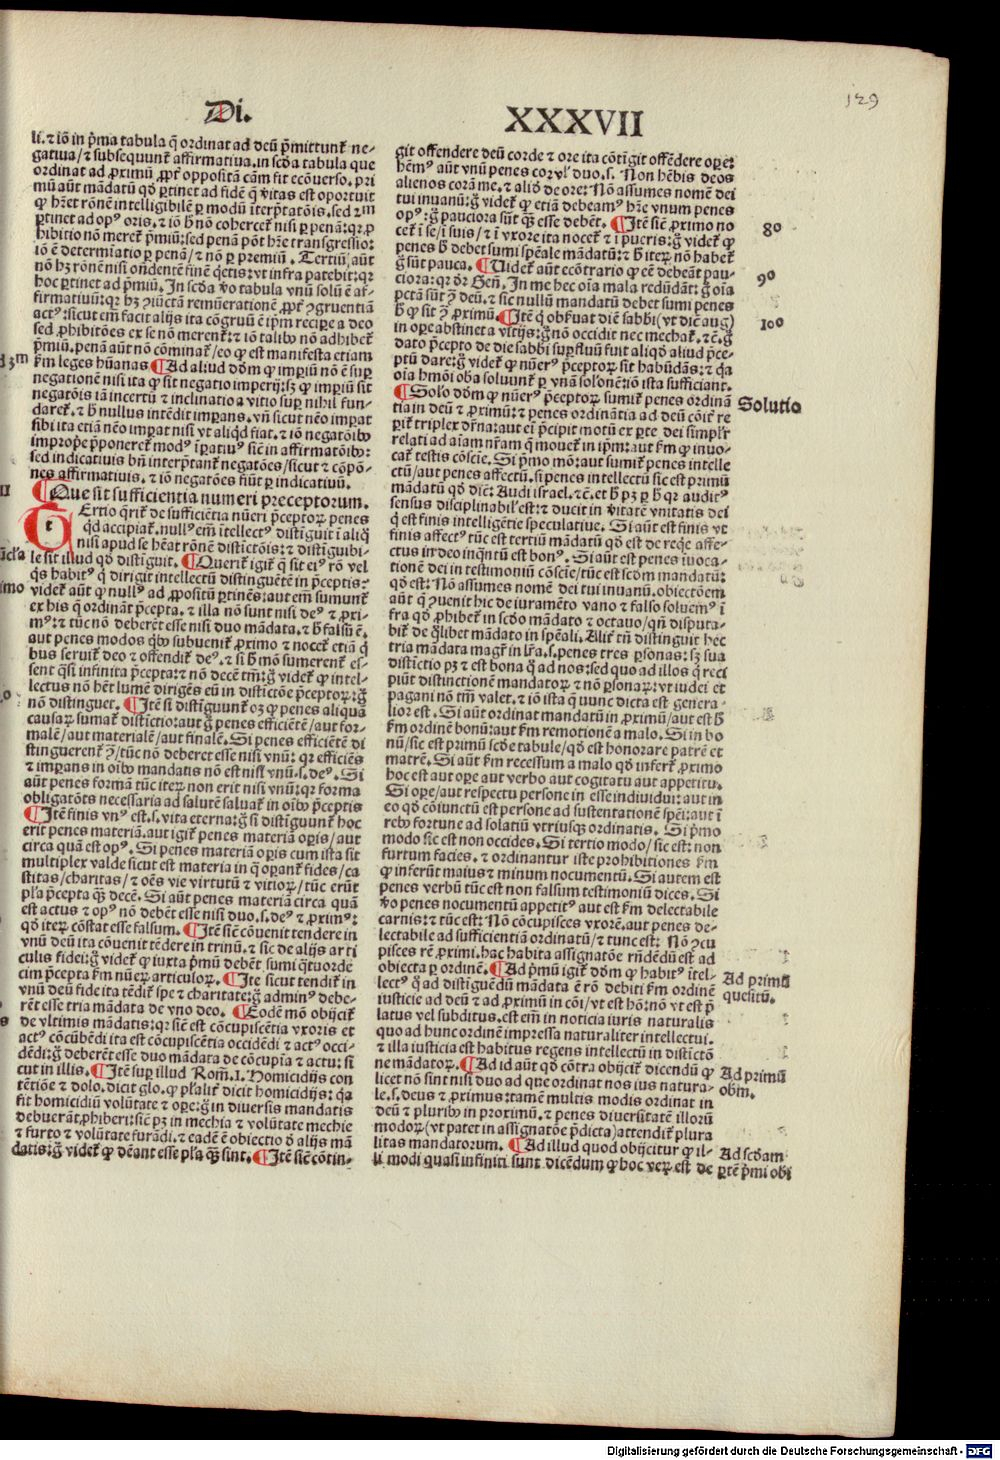 129
Di.
XXXVII
li. ⁊ iō in p̄ma tabula q̄ ordinat ad deū p̄mittunt᷑ ne-
gatiua/ ⁊ subsequunt᷑ affirmatiua. in scd̄a tabula que
ordinat ad ꝓximū ꝓpt᷑ oppositā cām fit ecōuerso. pri
mū aūt mādatū qd̄ ꝑtinet ad fidē q̄ v̄itas est oportuit
ꝙ hr̄et rōnē intelligibilē ꝑ modū īterp̄tatōis. sed 2m
ꝑtinet ad opꝰ oris. ⁊ iō b̄ nō coherceт᷑ nisi ꝑ penā: qꝛ ꝓ
hibitio nō meret᷑ p̄miū: sed penā pōt hr̄e transgressio:
iō ē determīatio ꝑ penā/ ⁊ nō ꝑ premiū. Tertiū aūt
nō hꝫ rōnē nisi ondentē finē q̄etis: vt infra patebit: qꝛ
hoc ꝑtinet ad p̄miū. In scd̄a v̄o tabula vnū solū ē af-
firmatiuū: qꝛ hꝫ ꝯiūctā remūerationē ꝓpt᷑ ꝯgruentiā
actꝰ: sicut em̄ facit alijs ita cōgruū ē ip̄m recipe a deo
sed ꝓhibitōes ex se nō merent᷑: ⁊ iō talibꝰ nō adhibet᷑
p̄miū. penā aūt nō cōminat᷑/eo ꝙ est manifesta etiam
d 3m
km leges hūanas ¶Ad aliud dōm ꝙ imꝑiū nō ē suꝑ
negationē nisi ita ꝙ sit negatio imperij: sꝫ ꝙ imꝑiū sit
negatōis iā incertū ⁊ inclinatio a vitio suꝑ nihil fun-
daret᷑. ⁊ b̄ nullus intēdit imꝑans. vn̄ sicut nēo imꝑat
sibi ita etiā nēo imꝑat nisi vt aliqd̄ fiat. ⁊ iō negatōibꝰ
imꝓpe p̄poneret᷑ modꝰ īꝑatiuꝰ siē in affirmatōibꝰ:
sed indicatiuis bn̄ interp̄tant᷑ negatōes/sicut ⁊ cōpō-
nes affirmatiuis. ⁊ iō negatōes fiūt ꝑ indicatiuū.
II
¶Que sit sufficientia numeri preceptorum.
t
Ertio q̄rit᷑ de sufficiētia nūeri p̄ceptoꝝ penes
qd̄ accipiat᷑. nullꝰ em̄ ītellectꝰ distiguit ī aliq̄
nisi apud se hēat rōnē distictōis: ⁊ distiguibi-
le sit illud qd̄ distiguit. ¶Querit᷑ igit᷑ q̄ sit eiꝰ rō vel
q̄s habitꝰ q̄ dirigit intellectū distinguētē in p̄ceptis:
imo
videt᷑ aūt ꝙ nullꝰ ad ꝓpositū ꝑtinēs: aut em̄ sumunt᷑
ex his q̄ ordināt p̄cepta. ⁊ illa nō sunt nisi deꝰ ⁊ ꝓxi-
mꝰ: ⁊ tūc nō deberēt esse nisi duo mādata. ⁊ b̄ falsū ē.
aut penes modos qbꝰ subuenit᷑ ꝓximo ⁊ nocet᷑ etiā q̄
bus seruit᷑ deo ⁊ offendit᷑ deꝰ. ⁊ si b̄ mō sumerent᷑ es-
sent q̄si infinita p̄cepta: ⁊ nō decē tm̄: g̊ videt᷑ ꝙ intel-
lectus nō hēt lumē dirigēs eū in distictōe p̄ceptoꝝ: g̊
nō distinguet. ¶Itē si distiguunt᷑ oꝫ ꝙ penes aliquā
causaꝝ sumat᷑ distictio: aut g̊ penes efficiētē/aut for-
malē/aut materialē/aut finalē. Si penes efficiētē di
stinguerent᷑ ꝯ/tūc nō deberet esse nisi vnū: qꝛ efficiēs
⁊ imꝑans in oībꝰ mandatis nō est nisi vnū. s. deꝰ. Si
aūt penes formā tūc iteꝝ non erit nisi vnū: qꝛ forma
obligatōis necessaria ad salutē saluat᷑ in oībꝰ p̄ceptis
¶Itē finis vnꝰ est. s. vita eterna: g̊ si distiguunt᷑ hoc
erit penes materiā. aut igit᷑ penes materiā oꝑis/aut
circa quā est opꝰ. Si penes materiā oꝑis cum ista sit
multiplex valde sicut est materia in q̄ oꝑant᷑ fides/ca
stitas/charitas/⁊ oēs vie virtutū ⁊ vitioꝝ/tūc erūt
pl̄a p̄cepta qꝫ decē. Si aūt penes materiā circa quā
est actus ⁊ opꝰ nō debēt esse nisi duo. s. deꝰ ⁊ ꝓximꝰ:
qd̄ iteꝝ cōstat esse falsum. ¶Itē siē cōuenit tendere in
vnū deū ita cōuenit tēdere in trinū. ⁊ sic de alijs arti
culis fidei: g̊ videt᷑ ꝙ iuxta p̄mū debēt sumi q̄tuorde
cim p̄cepta km nūeꝝ articuloꝝ. ¶Ite sicut tendit᷑ in
vnū deū fide ita tēdit᷑ spe ⁊ charitate: g̊ adminꝰ debe-
rēt esse tria mādata de vno deo. ¶Eodē mō obijcit᷑
de vltimis mādatis: qꝛ siē est cōcupiscētia vxoris et
actꝰ cōcūbēdi ita est cōcupiscētia occidēdi ⁊ actꝰ occi-
dēdi: g̊ deberēt esse duo mādata de cōcupīa ⁊ actu: si
cut in illis. ¶Itē suꝑ illud Rom̄. 1. Homicidijs con
tētiōe ⁊ dolo. dicit glo. ꝙ pl̄alit᷑ dicit homicidijs: q̄a
fit homicidiū volūtate ⁊ oꝑe: g̊ in diuersis mandatis
debuerāt ꝓhiberi: siē pꝫ in mechia ⁊ volūtate mechie
⁊ furto ⁊ volūtate furādi. ⁊ eadē ē obiectio d̄ alijs mā
datis: g̊ videt᷑ ꝙ dēant esse pl̄a qꝫ sint. ¶Itē siē cōtin-
git offendere deū corde ⁊ ore ita cōtīgit offēdere oꝑe:
hēmꝰ aūt vnū penes cor vl̓ duo. s. Non hēbis deos
alienos corā me. ⁊ aliō de ore: Nō assumes nomē dei
tui inuanū: g̊ videt᷑ ꝙ etiā debeamꝰ hr̄e vnum penes
opꝰ: g̊ pauciora sūt qꝫ esse debēt. ¶Itē siē ꝓximo no
80
cet᷑ ī se/ī suis/⁊ ī vxore ita nocet᷑ ⁊ ī pueris: g̊ videt᷑ ꝙ
penes b̄ debet sumi spēale mādatū: ⁊ b̄ iteꝝ nō habet᷑
g̊ sūt pauca. ¶Uidet᷑ aūt ecōtrario ꝙ eē debeāt pau-
90
ciora: qꝛ dr̄ Gen̄. In me hec oīa mala redūdāt: g̊ oīa
pctā sūt ꝯ deū. ⁊ sic nullū mandatū debet sumi penes
b̄ ꝙ sit ꝯ ꝓximū. ¶Itē q̄ obseruat diē sabbi (vt diē aug)
100
in oꝑe abstinet a vitijs: g̊ nō occidit nec mechat᷑. ⁊ē. g̊
dato p̄cepto de die sabbi suꝑfluū fuit aliqd̄ aliud p̄ce-
ptū dare: g̊ videt᷑ ꝙ nūerꝰ p̄ceptoꝝ sit habūdās: ⁊ q̄a
oīa hmōi oba soluunt᷑ ꝑ vnā sol̄onē: iō ista sufficiant.
¶Sol̄o dōm ꝙ nūerꝰ p̄ceptoꝝ sumit᷑ penes ordinā
Solutio
tia in deū ⁊ ꝓximū: ⁊ penes ordinātia ad deū cōit᷑ re
ꝑit᷑ triplex dr̄na: aut ei p̄cipit motū ex ꝑte dei simplr̄
relati ad aīam nr̄am q̄ mouet᷑ in ip̄m: aut km ꝙ inuo-
cat᷑ testis cōscīe. Si p̄mo mō: aut sumit᷑ penes intelle
ctū/aut penes affectū. si penes intellectū sic est primū
mādatū qd̄ diē: Audi israel. ⁊ē. et b̄ pꝫ ꝑ b̄ qꝛ auditꝰ
sensus disciplinabil̓ est: ⁊ ducit in v̄itatē vnitatis dei
q̄ est finis intelligētie speculatiue. Si aūt est finis vt
finis affectꝰ tūc est tertiū mādatū qd̄ est de reqe affe-
ctus ir deo inqn̄tū est bonꝰ. Si aūt est penes īuoca-
tionē dei in testimoniū cōscīe/tūc est scd̄m mandatū:
qd̄ est: Nō assumes nomē dei tui inuanū. obiectōem
aūt q̄ ꝯuenit hic de iuramēto vano ⁊ falso soluemꝰ ī
fra qd̄ ꝓhibet᷑ in scd̄o mādato ⁊ octauo/qn̄ disputa-
bit᷑ de q̄libet mādato in spēali. Alit᷑ tn̄ distinguit hec
tria mādata magr̄ in lr̄a. s. penes tres ꝑsonas: sꝫ sua
distictio pꝫ ⁊ est bona q̄ ad nos: sed quo ad illos q̄ reci
piūt distinctionē mandatoꝝ ⁊ nō ꝑsonaꝝ: vt iudei et
pagani nō tm̄ valet. ⁊ iō ista q̄ nunc dicta est genera-
lior est. Si aūt ordinat mandatū in ꝓximū/aut est b̄
km ordinē bonū: aut km remotionē a malo. Si in bo
nū/sic est primū scd̄e tabule/qd̄ est honorare patrē et
matrē. Si aūt km recessum a malo qd̄ infert᷑ ꝓximo
hoc est aut oꝑe aut verbo aut cogitatu aut appetitu.
Si oꝑe/aut respectu persone in esse indiuidui: aut in
eo qd̄ cōiunctū est persone ad sustentationē spēi: aut ī
rebꝰ fortune ad solatiū vtriusqꝫ ordinatis. Si p̄mo
modo sic est non occides. Si tertio modo/sic est: non
furtum facies. ⁊ ordinantur iste prohibitiones km
ꝙ inferūt maius ⁊ minum nocumentū. Si autem est
penes verbū tūc est non falsum testimoniū dices. Si
v̄o penes nocumentū appetitꝰ aut est km delectabile
carnis: ⁊ tūc est: Nō cōcupisces vxorē. aut penes de-
lectabile ad sufficientiā ordinatū/⁊ tunc est: Nō ꝯcu
pisces rē ꝓximi. hac habita assignatōe rn̄dēdū est ad
obiecta ꝑ ordinē. ¶Ad p̄mū igit᷑ dōm ꝙ habitꝰ ītel-
Ad primū
quesitū.
lectꝰ q̄ ad distinguēdū mādata ē rō debiti km ordinē
iusticie ad deū ⁊ ad ꝓximū in cōi/vt est hō: nō vt est p̄
latus vel subditus. est em̄ in noticia iuris naturalis
quo ad hunc ordinē impressa naturaliter intellectui.
⁊ illa iusticia est habitus regens intellectū in distictō
ne mādatoꝝ. ¶Ad id aūt qd̄ cōtra obijcit᷑ dicendū ꝙ
Ad primū
obm̄.
licet nō sint nisi duo ad que ordinat nos ius natura-
le. s. deus ⁊ ꝓximus: tamē multis modis ordinat in
deū ⁊ pluribꝰ in proximū. ⁊ penes diuersitatē illorū
modoꝝ (vt patet in assignatōe p̄dicta) attendit᷑ plura
litas mandatorum. ¶Ad illud quod obijcitur ꝙ il-
Ad scd̄am
li modi quasi infiniti sunt dicēdum ꝙ hoc veꝝ est de
ꝑtē p̄mi obi
Digitalisierung gefördert durch die Deutsche Forschungsgemeinschaft - DFG